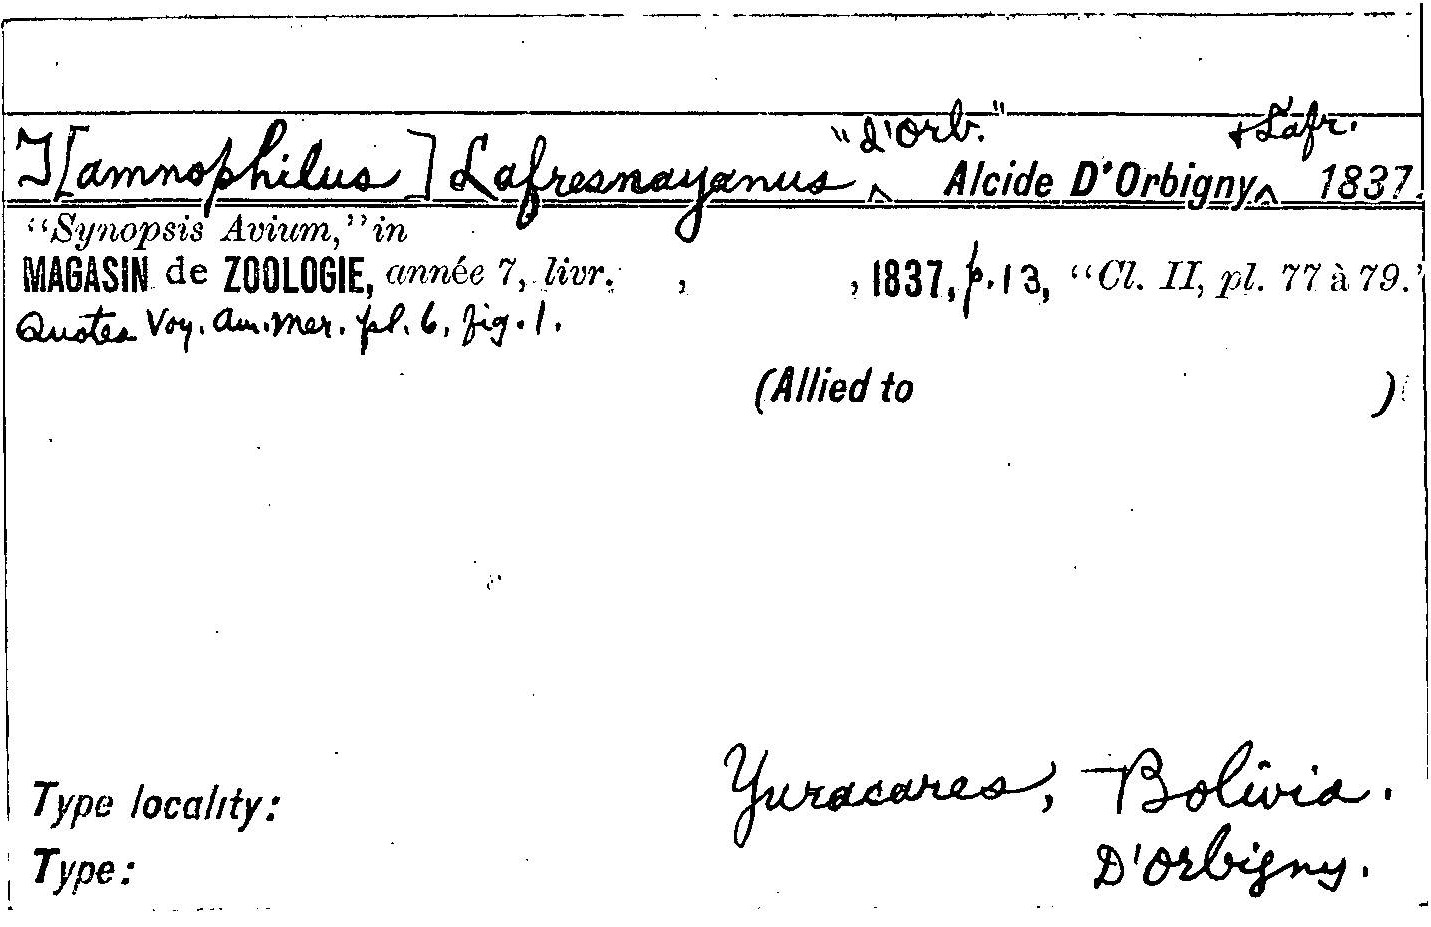 T[amnophilus] Lafresnayanus ‸ "d'Orb." Alcide D'Orbigny ‸ & Lafr. 1837.
"Synopsis Avium," in
MAGASIN de ZOOLOGIE, année 7, livr. , , 1837, p. 13, "Cl. II, pl. 77 à 79."
Quotes Voy. Am. Mer. pl. 6, fig. 1.
(Allied to )
Type locality: Yuracares, Bolivia.
Type: D'Orbigny.